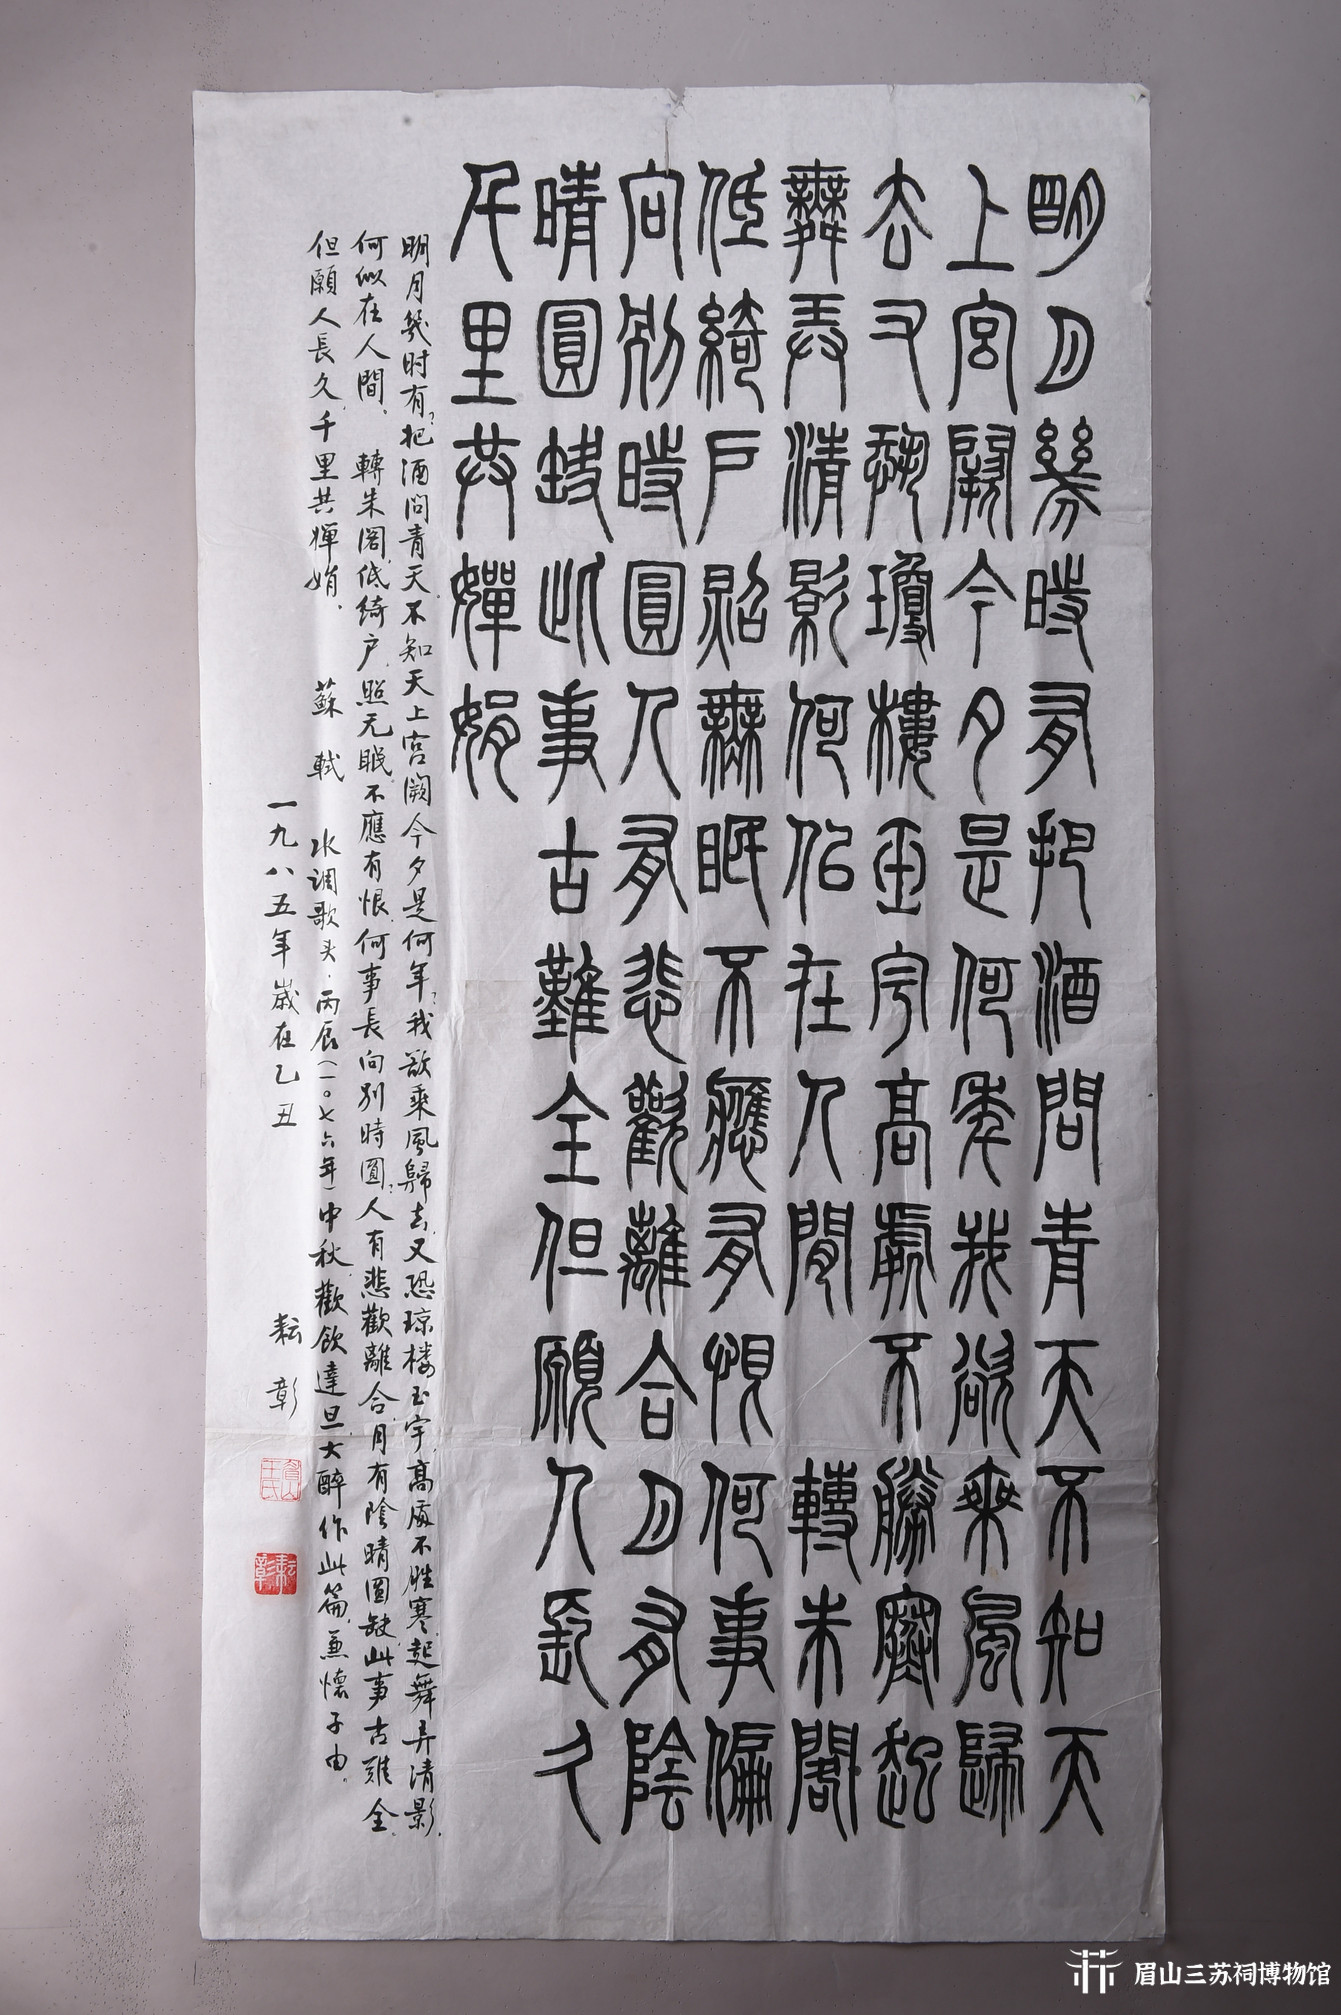 明月幾時有把酒問青天不知天
上宮闕今夕是何年我欲乘風歸
去又恐瓊樓玉宇高處不勝寒起
舞弄清影何似在人間 轉朱閣
低綺戶照無眠不應有恨何事偏
向別時圓人有悲歡離合月有陰
晴圓缺此事古難全但願人長久
千里共嬋娟
明月幾时有?把酒问青天.不知天上宫阙今夕是何年?我欲乘風歸去,又恐琼楼玉宇,高處不胜寒.起舞弄清影.
何似在人間. 轉朱阁,低绮户,照无眠.不應有恨,何事長向别時圆?人有悲歡離合,月有陰晴圆缺,此事古難全.
但願人長久,千里共婵娟. 蘇軾 水调歌头·丙辰(一〇七六年)中秋,歡飲達旦大醉,作此篇,兼懷子由.
一九八五年歲在乙丑 耘彰
眉山王氏
耘彰
眉山三苏祠博物馆